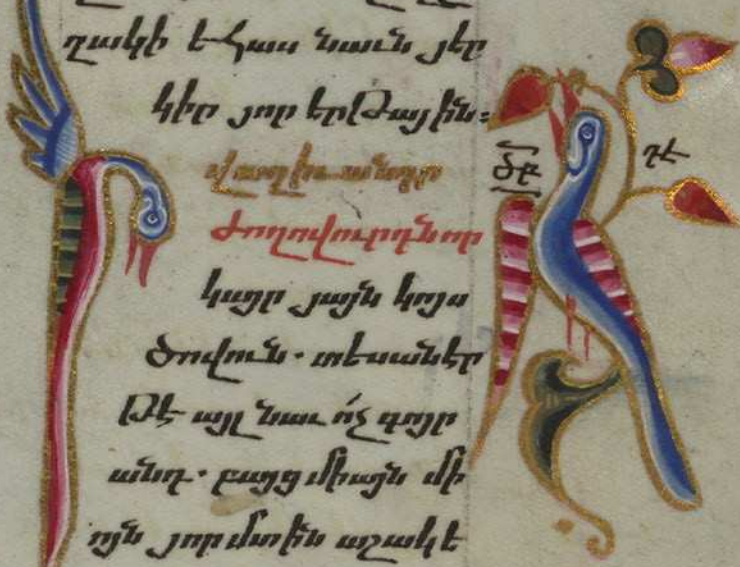 ղակի եհաս նաւն յեր
կիր յոր երթային։
Ի վաղիւ անդր
ժողովուրդն որ
կայր յայն կոյս
ծովուն. տեսանէր
թէ այլ նաւ ոչ գոյր
անդ. բայց միայն մի
այն յոր մտին աշակե
ծբ